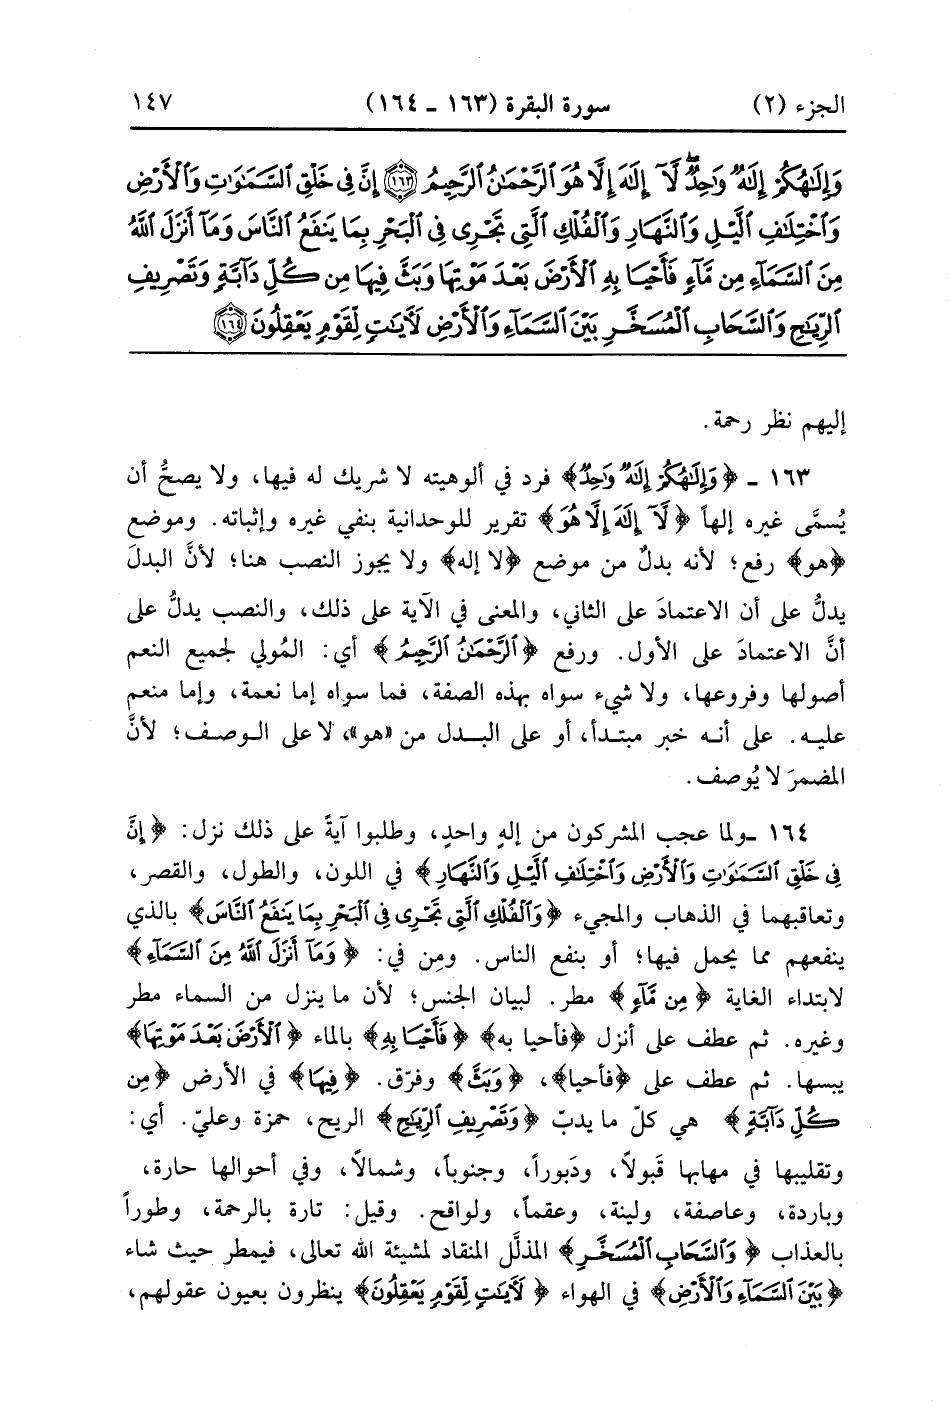 الجزء (٢) سورة البقرة (١٦٣ - ١٦٤) ١٤٧
وَإِلَٰهُكُمْ إِلَٰهٌ وَٰحِدٌ ۖ لَّآ إِلَٰهَ إِلَّا هُوَ ٱلرَّحْمَٰنُ ٱلرَّحِيمُ ﴿١٦٣﴾ إِنَّ فِى خَلْقِ ٱلسَّمَٰوَٰتِ وَٱلْأَرْضِ
وَٱخْتِلَٰفِ ٱلَّيْلِ وَٱلنَّهَارِ وَٱلْفُلْكِ ٱلَّتِى تَجْرِى فِى ٱلْبَحْرِ بِمَا يَنفَعُ ٱلنَّاسَ وَمَآ أَنزَلَ ٱللَّهُ
مِنَ ٱلسَّمَآءِ مِن مَّآءٍ فَأَحْيَا بِهِ ٱلْأَرْضَ بَعْدَ مَوْتِهَا وَبَثَّ فِيهَا مِن كُلِّ دَآبَّةٍ وَتَصْرِيفِ
ٱلرِّيَٰحِ وَٱلسَّحَابِ ٱلْمُسَخَّرِ بَيْنَ ٱلسَّمَآءِ وَٱلْأَرْضِ لَءَايَٰتٍ لِّقَوْمٍ يَعْقِلُونَ ﴿١٦٤﴾
إليهم نظر رحمة.
١٦٣ - ﴿وَإِلَٰهُكُمْ إِلَٰهٌ وَٰحِدٌ﴾ فرد في ألوهيته لا شريك له فيها، ولا يصحُّ أن
يُسمَّى غيره إلهاً ﴿لَّآ إِلَٰهَ إِلَّا هُوَ﴾ تقرير للوحدانية بنفي غيره وإثباته. وموضع
﴿هو﴾ رفع؛ لأنه بدلٌ من موضع ﴿لا إله﴾ ولا يجوز النصب هنا؛ لأنَّ البدلَ
يدلُّ على أن الاعتمادَ على الثاني، والمعنى في الآية على ذلك، والنصب يدلُّ على
أنَّ الاعتمادَ على الأول. ورفع ﴿ٱلرَّحْمَٰنُ ٱلرَّحِيمُ﴾ أي: المُولي لجميع النعم
أصولها وفروعها، ولا شيء سواه بهذه الصفة، فما سواه إما نعمة، وإما منعم
عليه. على أنه خبر مبتدأ، أو على البدل من «هو»، لا على الوصف؛ لأنَّ
المضمرَ لا يُوصف.
١٦٤ -ولما عجب المشركون من إلهٍ واحدٍ، وطلبوا آيةً على ذلك نزل: ﴿إِنَّ
فِى خَلْقِ ٱلسَّمَٰوَٰتِ وَٱلْأَرْضِ وَٱخْتِلَٰفِ ٱلَّيْلِ وَٱلنَّهَارِ﴾ في اللون، والطول، والقصر،
وتعاقبهما في الذهاب والمجيء ﴿وَٱلْفُلْكِ ٱلَّتِى تَجْرِى فِى ٱلْبَحْرِ بِمَا يَنفَعُ ٱلنَّاسَ﴾ بالذي
ينفعهم مما يحمل فيها؛ أو بنفع الناس. ومِن في: ﴿وَمَآ أَنزَلَ ٱللَّهُ مِنَ ٱلسَّمَآءِ﴾
لابتداء الغاية ﴿مِن مَّآءٍ﴾ مطر. لبيان الجنس؛ لأن ما ينزل من السماء مطر
وغيره. ثم عطف على أنزل ﴿فأحيا به﴾ ﴿فَأَحْيَا بِهِ﴾ بالماء ﴿ٱلْأَرْضَ بَعْدَ مَوْتِهَا﴾
يبسها. ثم عطف على ﴿فأحيا﴾، ﴿وَبَثَّ﴾ وفرّق. ﴿فِيهَا﴾ في الأرض ﴿مِن
كُلِّ دَآبَّةٍ﴾ هي كلّ ما يدبّ ﴿وَتَصْرِيفِ ٱلرِّيَٰحِ﴾ الريح، حمزة وعليّ. أي:
وتقليبها في مهابها قَبولاً، ودَبوراً، وجنوباً، وشمالاً، وفي أحوالها حارة،
وباردة، وعاصفة، ولينة، وعقماً، ولواقح. وقيل: تارة بالرحمة، وطوراً
بالعذاب ﴿وَٱلسَّحَابِ ٱلْمُسَخَّرِ﴾ المذلَّل المنقاد لمشيئة الله تعالى، فيمطر حيث شاء
﴿بَيْنَ ٱلسَّمَآءِ وَٱلْأَرْضِ﴾ في الهواء ﴿لَءَايَٰتٍ لِّقَوْمٍ يَعْقِلُونَ﴾ ينظرون بعيون عقولهم،